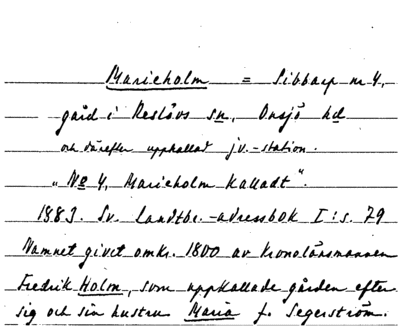 Marieholm = Sibbarp nr 4,
gård i Reslövs sn, Onsjö hd
och därefter uppkallad jv.-station.
„No 4, Marieholm kalladt".
1883. Sv. Landtbr.-adressbok I: s. 79
Namnet givet omkr. 1800 av kronolänsmannen
Fredrik Holm, som uppkallade gården efter
sig och sin hustru Maria f. Segerström.